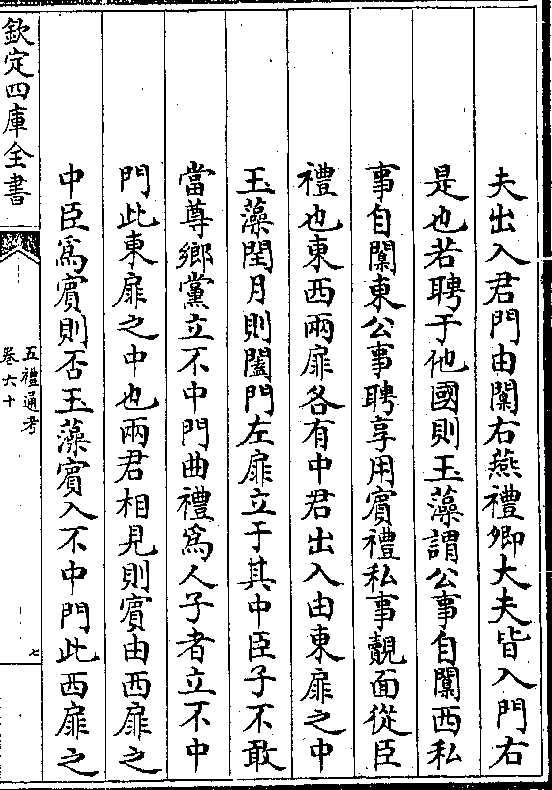 夫出入君門由闑右燕禮卿大夫皆入門右
是也若聘于他國則玉藻謂公事自闑西私
事自闑東公事聘享用賓禮私事覿面從臣
禮也東西兩扉各有中君出入由東扉之中
玉藻閏月則闔門左扉立于其中臣子不敢
當尊鄉黨立不中門曲禮爲人子者立不中
門此東扉之中也兩君相見則賓由西扉之
中臣爲賓則否玉藻賓入不中門此西扉之
欽定四庫全書
五禮通考
卷六十
七